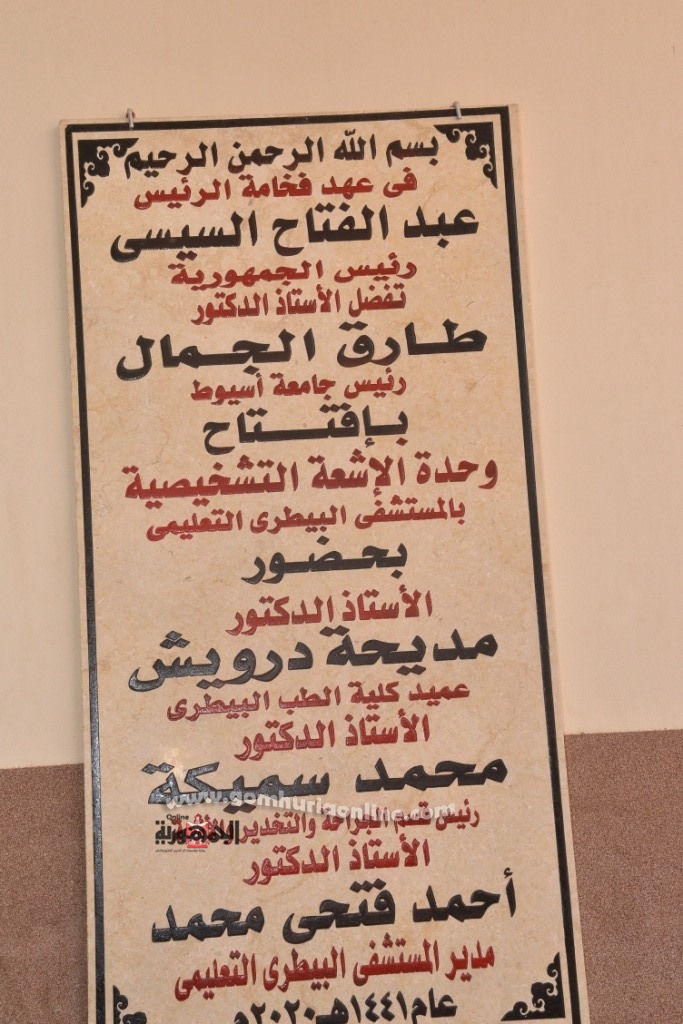 بسم الله الرحمن الرحيم
فى عهد فخامة الرئيس
عبد الفتاح السيسى
رئيس الجمهورية
تفضل الأستاذ الدكتور
طارق الجمال
رئيس جامعة أسيوط
بإفتتاح
وحدة الإشعة التشخيصية
بالمستشفى البيطرى التعليمى
بحضور
الأستاذ الدكتور
مديحة درويش
عميد كلية الطب البيطرى
الأستاذ الدكتور
محمد سميكة
www.gomhuriaonline.com
رئيس قسم الجراحة والتخدير
Online
الجمهورية
الأستاذ الدكتور
أحمد فتحى محمد
مدير المستشفى البيطرى التعليمى
عام ١٤٤١هـ-٢٠٢٠م